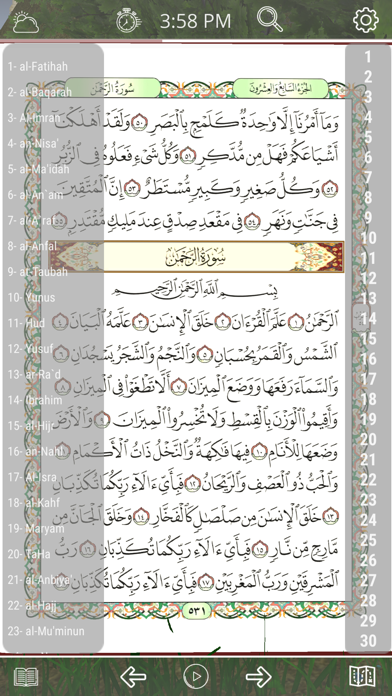 3:58 PM
سُورَةُ الرَّحْمَٰن
الجُزْءُ السَّابِعُ وَالعِشْرُونَ
وَمَآ أَمْرُنَآ إِلَّا وَٰحِدَةٌ كَلَمْحٍۭ بِٱلْبَصَرِ ٥٠ وَلَقَدْ أَهْلَكْنَآ
أَشْيَاعَكُمْ فَهَلْ مِن مُّدَّكِرٍ ٥١ وَكُلُّ شَىْءٍ فَعَلُوهُ فِى ٱلزُّبُرِ
٥٢ وَكُلُّ صَغِيرٍ وَكَبِيرٍ مُّسْتَطَرٌ ٥٣ إِنَّ ٱلْمُتَّقِينَ
فِى جَنَّٰتٍ وَنَهَرٍ ٥٤ فِى مَقْعَدِ صِدْقٍ عِندَ مَلِيكٍ مُّقْتَدِرٍۭ ٥٥
سُورَةُ الرَّحْمَٰن
بِسْمِ ٱللَّهِ ٱلرَّحْمَٰنِ ٱلرَّحِيمِ
ٱلرَّحْمَٰنُ ١ عَلَّمَ ٱلْقُرْءَانَ ٢ خَلَقَ ٱلْإِنسَٰنَ ٣ عَلَّمَهُ ٱلْبَيَانَ ٤
ٱلشَّمْسُ وَٱلْقَمَرُ بِحُسْبَانٍ ٥ وَٱلنَّجْمُ وَٱلشَّجَرُ يَسْجُدَانِ ٦
وَٱلسَّمَآءَ رَفَعَهَا وَوَضَعَ ٱلْمِيزَانَ ٧ أَلَّا تَطْغَوْا۟ فِى ٱلْمِيزَانِ ٨
وَأَقِيمُوا۟ ٱلْوَزْنَ بِٱلْقِسْطِ وَلَا تُخْسِرُوا۟ ٱلْمِيزَانَ ٩ وَٱلْأَرْضَ
وَضَعَهَا لِلْأَنَامِ ١٠ فِيهَا فَٰكِهَةٌ وَٱلنَّخْلُ ذَاتُ ٱلْأَكْمَامِ ١١
وَٱلْحَبُّ ذُو ٱلْعَصْفِ وَٱلرَّيْحَانُ ١٢ فَبِأَىِّ ءَالَآءِ رَبِّكُمَا تُكَذِّبَانِ
١٣ خَلَقَ ٱلْإِنسَٰنَ مِن صَلْصَٰلٍ كَٱلْفَخَّارِ ١٤ وَخَلَقَ ٱلْجَآنَّ مِن
مَّارِجٍ مِّن نَّارٍ ١٥ فَبِأَىِّ ءَالَآءِ رَبِّكُمَا تُكَذِّبَانِ ١٦ رَبُّ
ٱلْمَشْرِقَيْنِ وَرَبُّ ٱلْمَغْرِبَيْنِ ١٧ فَبِأَىِّ ءَالَآءِ رَبِّكُمَا تُكَذِّبَانِ
٥٣١
1- al-Fatihah
2- al-Baqarah
3- Al-Imran
4- an-Nisa'
5- al-Ma'idah
6- al-An`am
7- al-A`raf
8- al-Anfal
9- at-Taubah
10- Yunus
11- Hud
12- Yusuf
13- ar-Ra`d
14- Ibrahim
15- al-Hijr
16- an-Nahl
17- Al-Isra
18- al-Kahf
19- Maryam
20- TaHa
21- al-Anbiya'
22- al-Hajj
23- al-Mu'minun
1
2
3
4
5
6
7
8
9
10
11
12
13
14
15
16
17
18
19
20
21
22
23
24
25
26
27
28
29
30